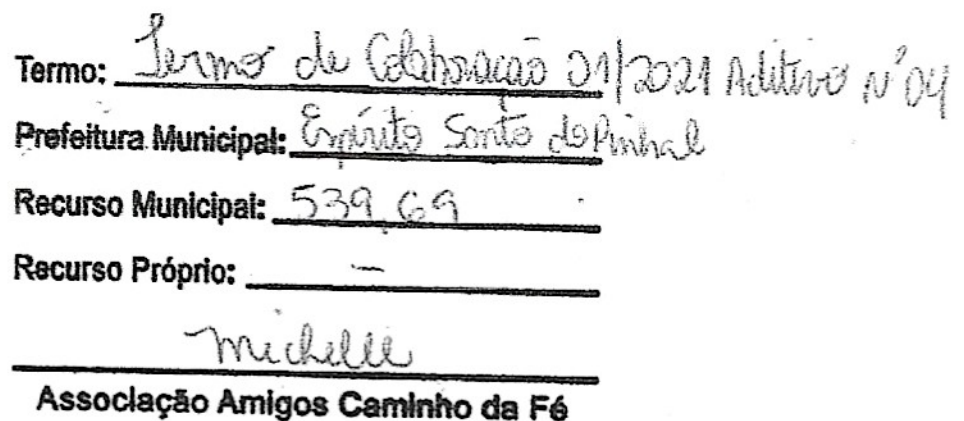 Termo: Termo de Colaboração 01/2021 Aditivo Nº 04
Prefeitura Municipal: Espírito Santo do Pinhal
Recurso Municipal: 539,69
Recurso Próprio: —
Michelle
Associação Amigos Caminho da Fé